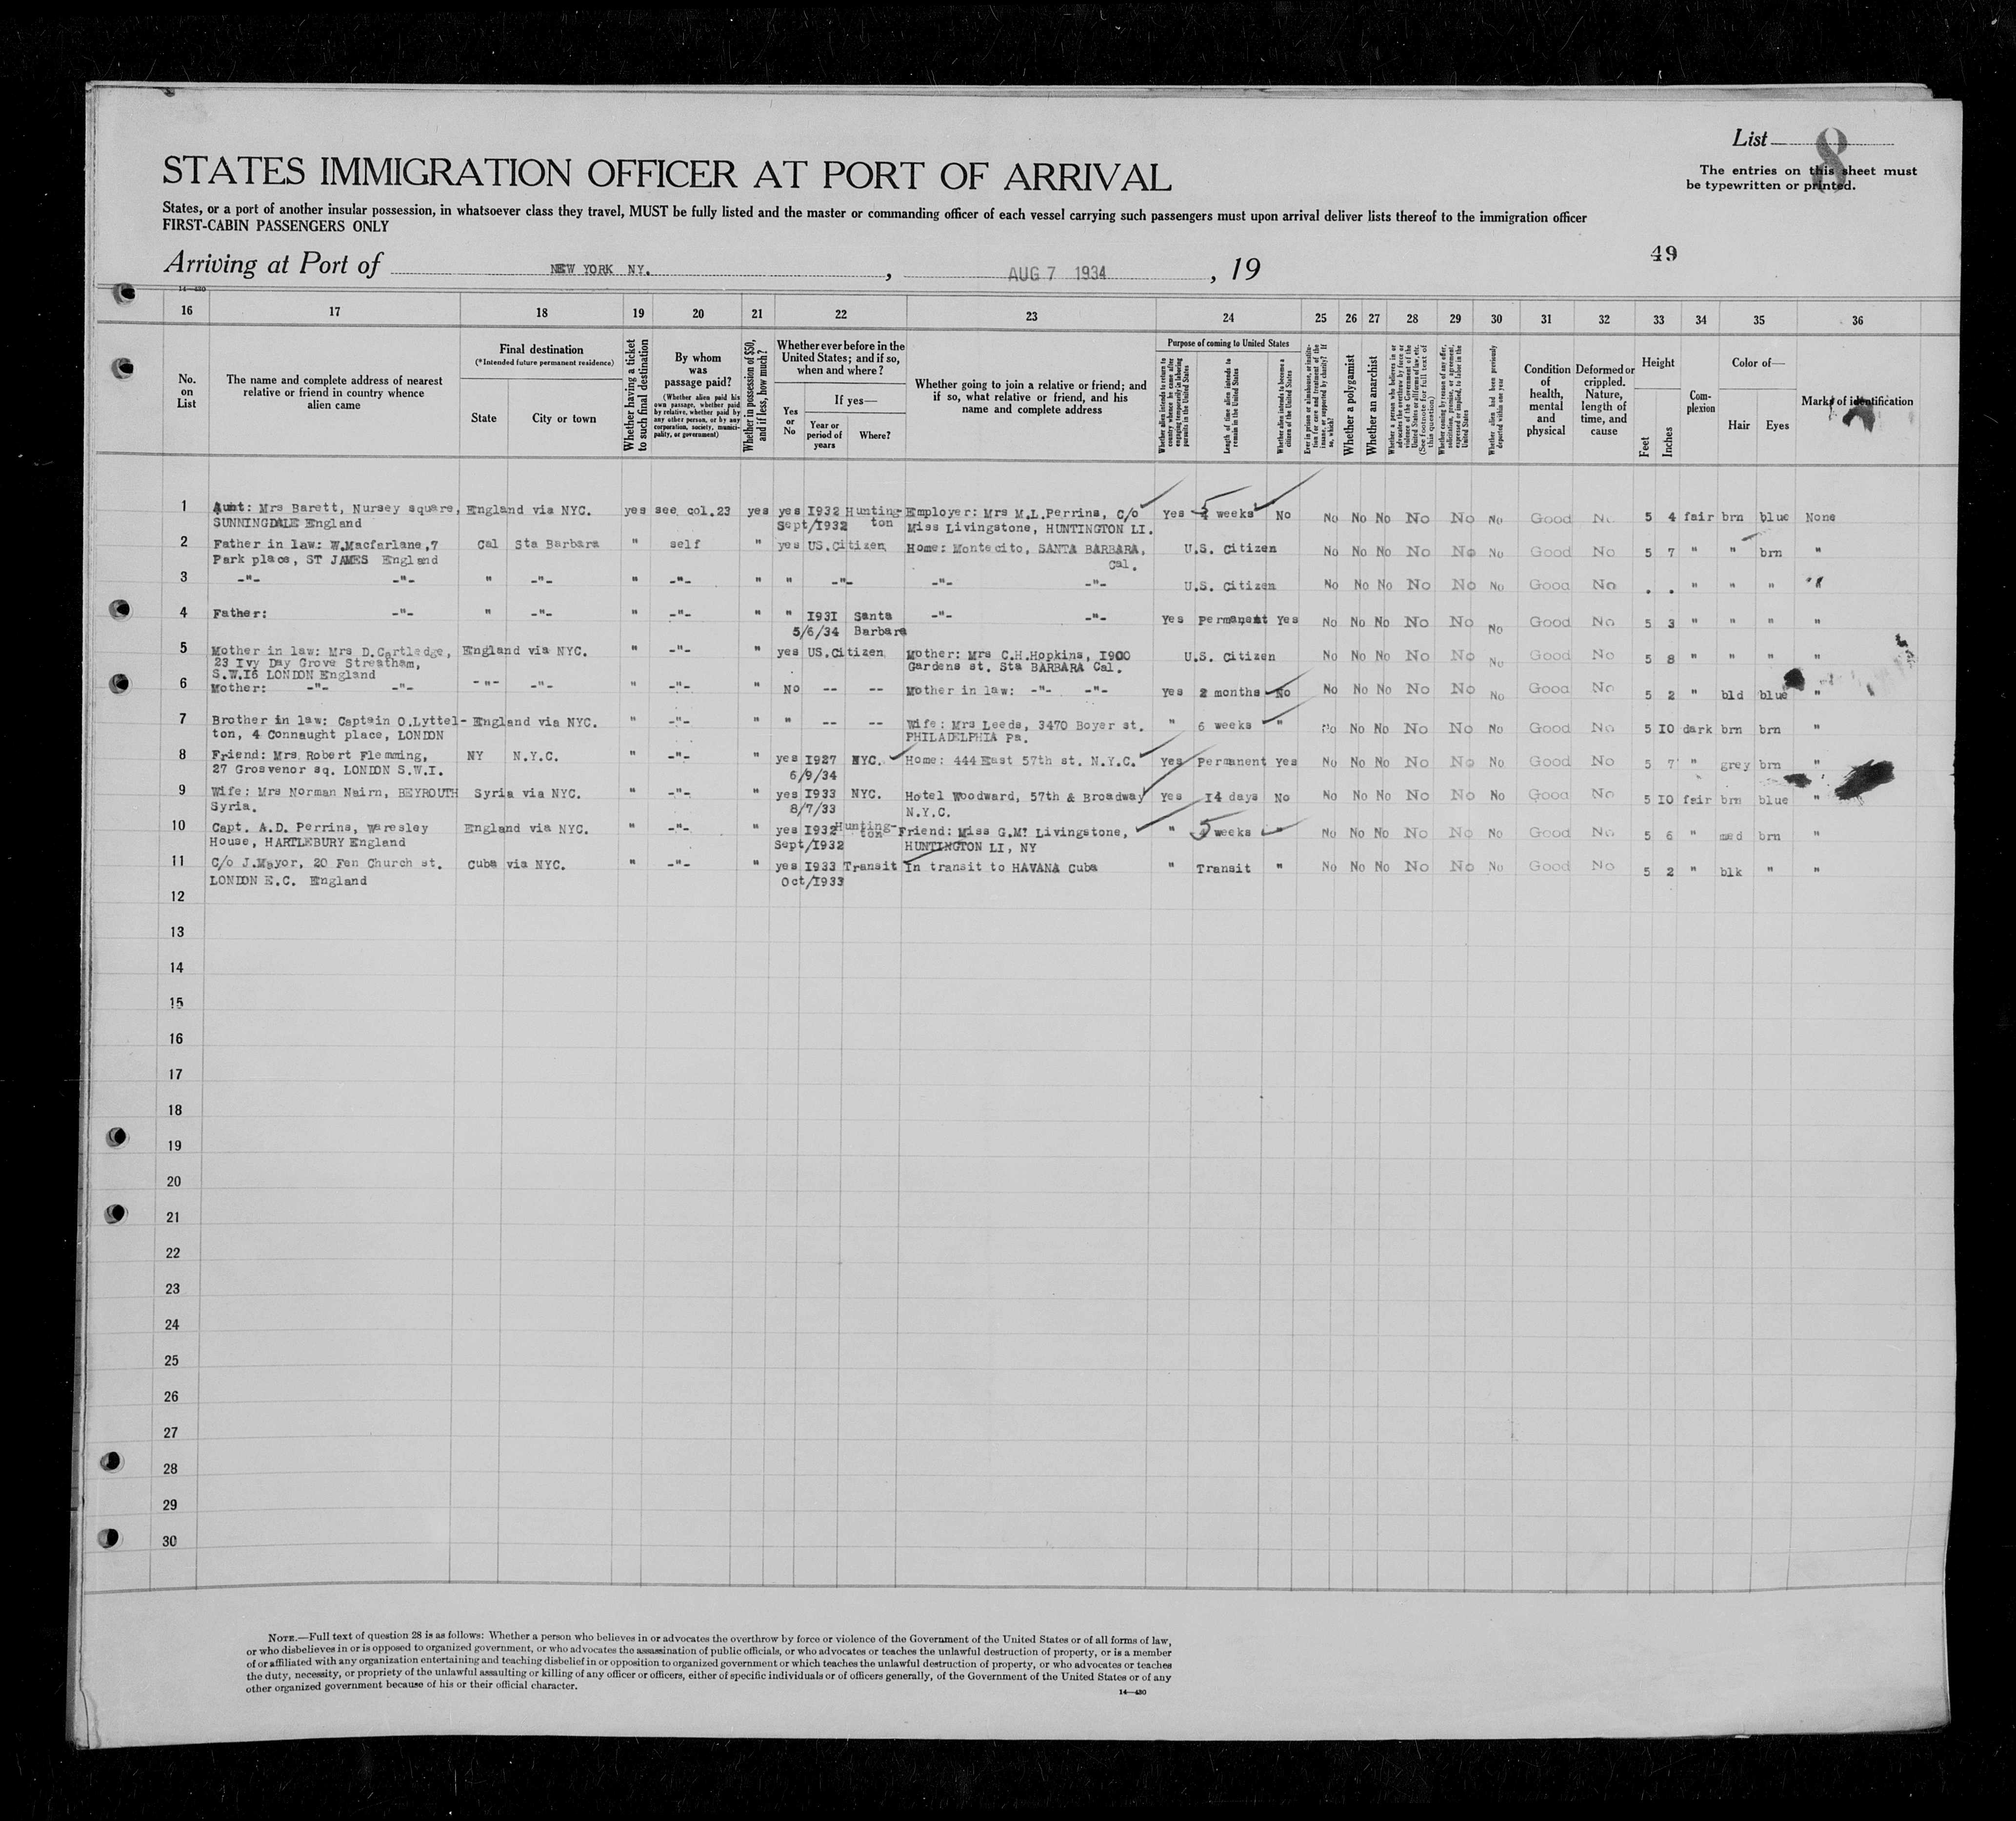 List 8
The entries on this sheet must
be typewritten or printed.
STATES IMMIGRATION OFFICER AT PORT OF ARRIVAL
States, or a port of another insular possession, in whatsoever class they travel, MUST be fully listed and the master or commanding officer of each vessel carrying such passengers must upon arrival deliver lists thereof to the immigration officer
FIRST-CABIN PASSENGERS ONLY
49
Arriving at Port of NEW YORK NY. , AUG 7 1934 , 19
14—430
16 17 18 19 20 21 22 23 24 25 26 27 28 29 30 31 32 33 34 35 36
No. on List
The name and complete address of nearest relative or friend in country whence alien came
Final destination
(*Intended future permanent residence)
State
City or town
Whether having a ticket to such final destination
By whom was passage paid?
(Whether alien paid his own passage, whether paid by relative, whether paid by any other person, or by any corporation, society, municipality, or government)
Whether in possession of $50, and if less, how much?
Whether ever before in the United States; and if so, when and where?
Yes or No
If yes—
Year or period of years
Where?
Whether going to join a relative or friend; and if so, what relative or friend, and his name and complete address
Purpose of coming to United States
Whether alien intends to return to country whence he came after engaging temporarily in laboring pursuits in the United States
Length of time alien intends to remain in the United States
Whether alien intends to become a citizen of the United States
Ever in prison or almshouse, or institution for care and treatment of the insane, or supported by charity? If so, which?
Whether a polygamist
Whether an anarchist
Whether a person who believes in or advocates the overthrow by force or violence of the Government of the United States or all forms of law, etc. (See footnote for full text of this question)
Whether coming by reason of any offer, solicitation, promise, or agreement, expressed or implied, to labor in the United States
Whether alien had been previously deported within one year
Condition of health, mental and physical
Deformed or crippled. Nature, length of time, and cause
Height
Feet
Inches
Complexion
Color of—
Hair
Eyes
Marks of identification
1 Aunt: Mrs Barett, Nursey square, England via NYC. yes see col.23 yes yes I932 Hunting- Employer: Mrs M.L.Perrins, C/o Yes 5 weeks No No No No No No No Good No 5 4 fair brn blue None
SUNNINGDALE England Sept/I932 ton Miss Livingstone, HUNTINGTON LI.
2 Father in law: W.Macfarlane,7 Cal Sta Barbara " self " yes US.Citizen Home: Montecito, SANTA BARBARA, U.S. Citizen No No No No No No Good No 5 7 " " brn "
Park place, ST JAMES England Cal.
3 -"- -"- " -"- " -"- " " -"- -"- -"- U.S. Citizen No No No No No No Good No . . " " " "
4 Father: -"- " -"- " -"- " " I93I Santa -"- -"- Yes Permanent Yes No No No No No No Good No 5 3 " " " "
5/6/34 Barbara
5 Mother in law: Mrs D.Cartledge, England via NYC. " -"- " yes US.Citizen Mother: Mrs C.H.Hopkins, I900 U.S. Citizen No No No No No No Good No 5 8 " " " "
23 Ivy Day Grove Streatham, Gardens st. Sta BARBARA Cal.
S.W.I6 LONDON England
6 Mother: -"- -"- -"- -"- " -"- " No -- -- Mother in law: -"- -"- Yes 2 months No No No No No No No Good No 5 2 " bld blue "
7 Brother in law: Captain O.Lyttel- England via NYC. " -"- " " -- -- Wife: Mrs Leeds, 3470 Boyer st. " 6 weeks " No No No No No No Good No 5 IO dark brn brn "
ton, 4 Connaught place, LONDON PHILADELPHIA Pa.
8 Friend: Mrs Robert Flemming, NY N.Y.C. " -"- " yes I927 NYC. Home: 444 East 57th st. N.Y.C. Yes Permanent Yes No No No No No No Good No 5 7 " grey brn "
27 Grosvenor sq. LONDON S.W.I. 6/9/34
9 Wife: Mrs Norman Nairn, BEYROUTH Syria via NYC. " -"- " yes I933 NYC. Hotel Woodward, 57th & Broadway Yes I4 days No No No No No No No Good No 5 IO fair brn blue "
Syria. 8/7/33 N.Y.C.
10 Capt. A.D. Perrins, Waresley England via NYC. " -"- " yes I932 Hunting-ton Friend: Miss G.M. Livingstone, " 5 weeks " No No No No No No Good No 5 6 " med brn "
House, HARTLEBURY England Sept/I932 HUNTINGTON LI, NY
11 C/o J.Mayor, 20 Fen Church st. Cuba via NYC. " -"- " yes I933 Transit In transit to HAVANA Cuba " Transit " No No No No No No Good No 5 2 " blk " "
LONDON E.C. England Oct/I933
12
13
14
15
16
17
18
19
20
21
22
23
24
25
26
27
28
29
30
NOTE.—Full text of question 28 is as follows: Whether a person who believes in or advocates the overthrow by force or violence of the Government of the United States or of all forms of law,
or who disbelieves in or is opposed to organized government, or who advocates the assassination of public officials, or who advocates or teaches the unlawful destruction of property, or is a member
of or affiliated with any organization entertaining and teaching disbelief in or opposition to organized government or which teaches the unlawful destruction of property, or who advocates or teaches
the duty, necessity, or propriety of the unlawful assaulting or killing of any officer or officers, either of specific individuals or of officers generally, of the Government of the United States or of any
other organized government because of his or their official character.
14—430